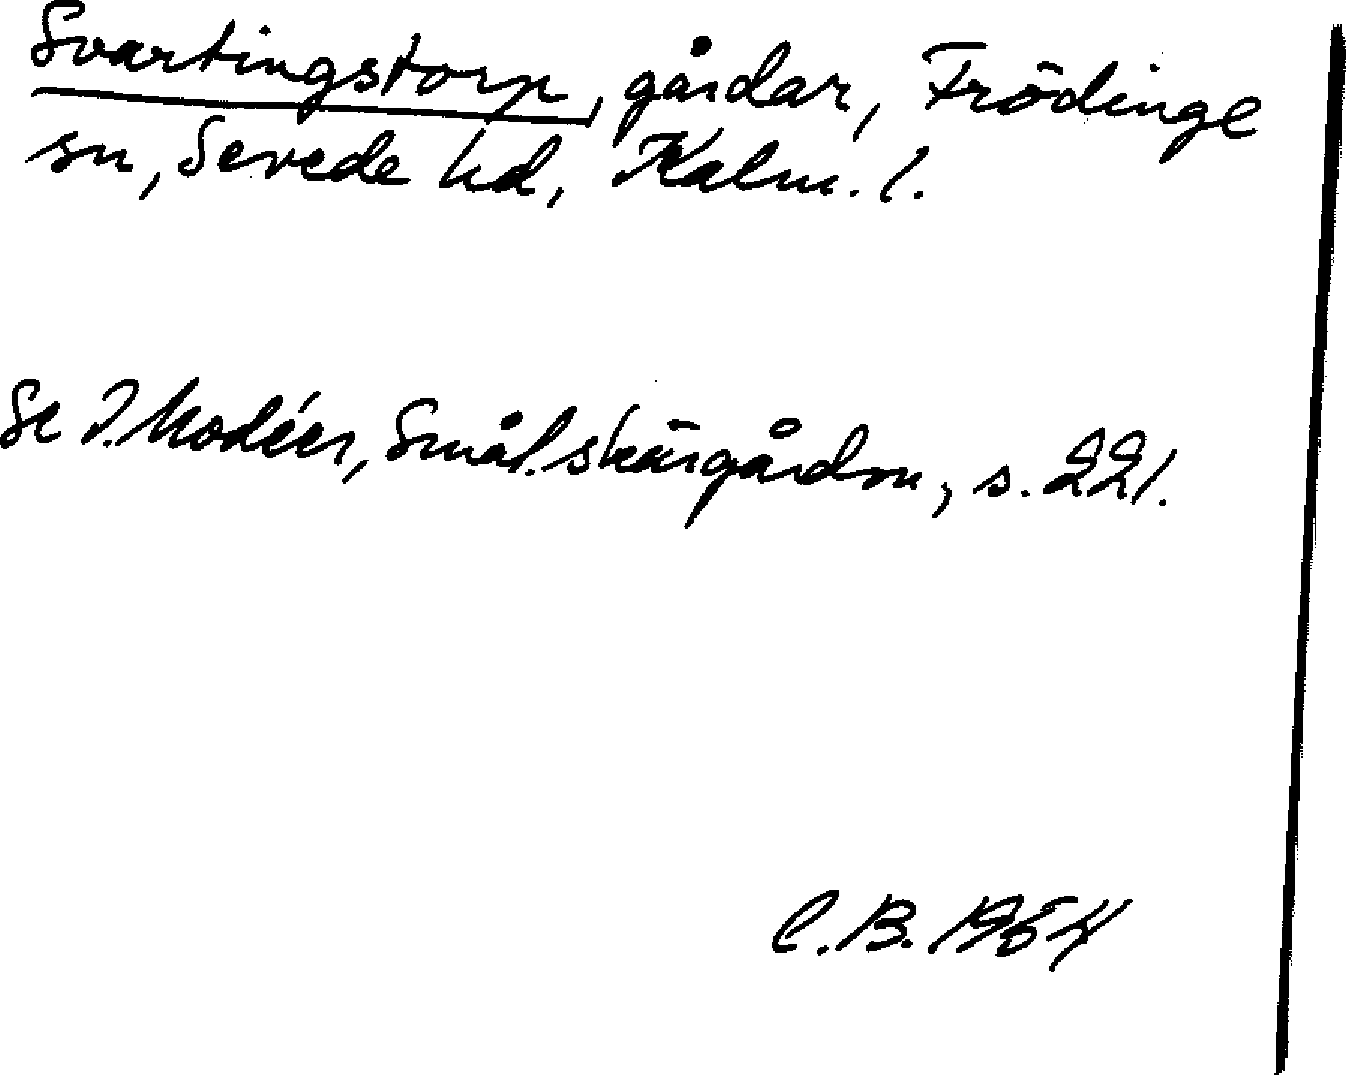 Svartingstorp, gårdar, Frödinge
sn, Sevede hd, Kalm. l.
Se I. Modéer, Smål. skärgårdsn, s. 221.
C. B. 1954